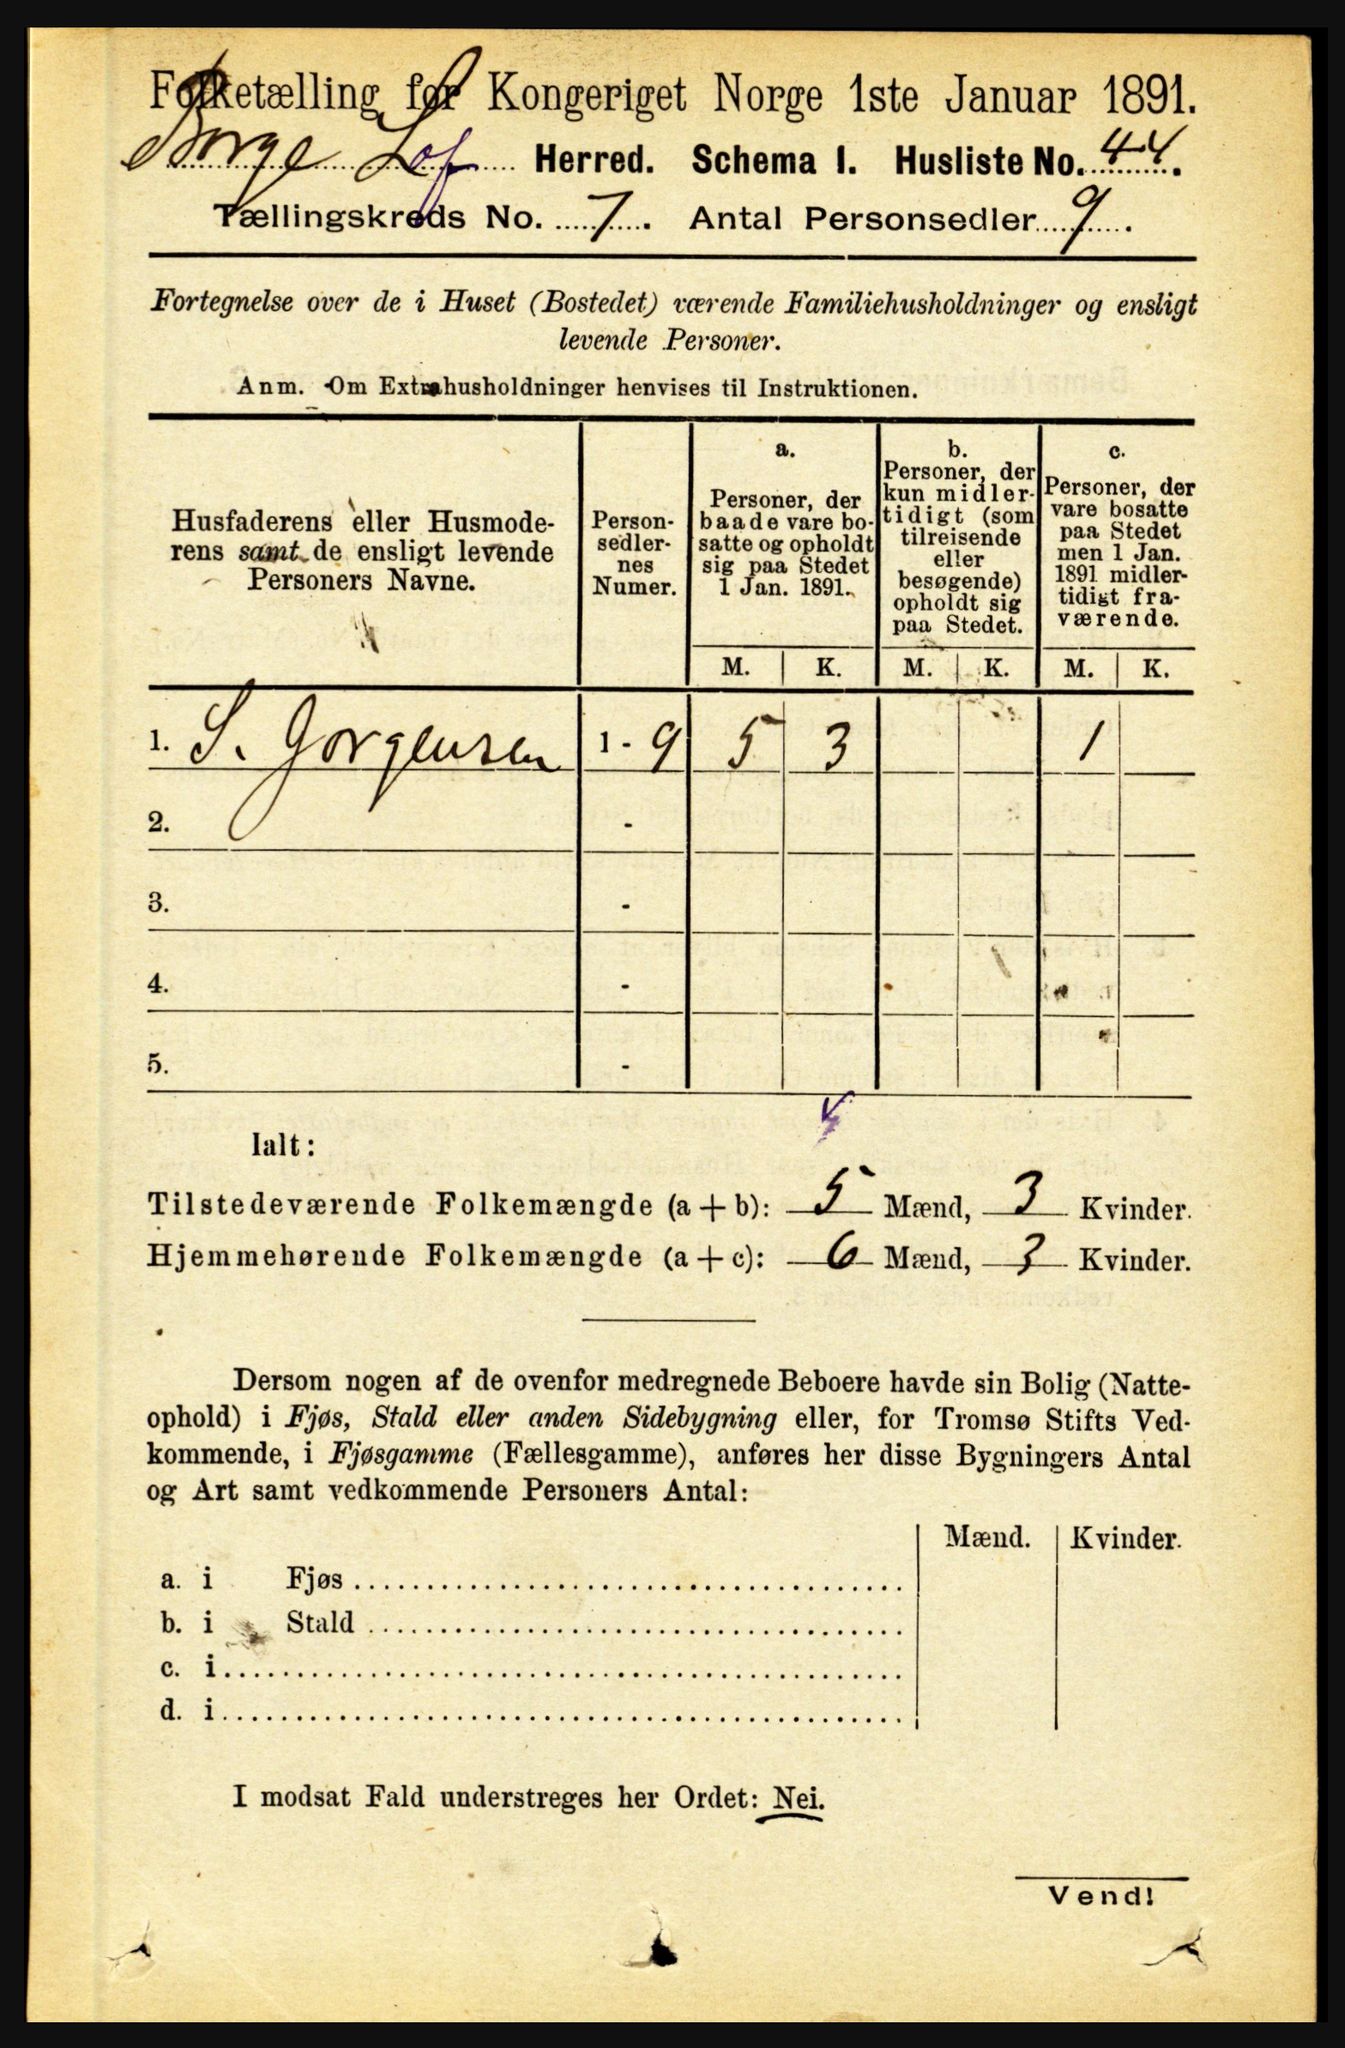 Folketælling for Kongeriget Norge 1ste Januar 1891.
Borge Lof Herred. Schema I. Husliste No. 44.
Tællingskreds No. 7. Antal Personsedler 9.
Fortegnelse over de i Huset (Bostedet) værende Familiehusholdninger og ensligt
levende Personer.
Anm. Om Extrahusholdninger henvises til Instruktionen.
Husfaderens eller Husmode-
rens samt de ensligt levende
Personers Navne.
Person-
sedler-
nes
Numer.
a.
Personer, der
baade vare bo-
satte og opholdt
sig paa Stedet
1 Jan. 1891.
b.
Personer, der
kun midler-
tidigt (som
tilreisende
eller
besøgende)
opholdt sig
paa Stedet.
c.
Personer, der
vare bosatte
paa Stedet
men 1 Jan.
1891 midler-
tidigt fra-
værende.
M. K. M. K. M. K.
1. S. Jorgensen 1 - 9 5 3 1
2. -
3. -
4. -
5. -
Ialt:
Tilstedeværende Folkemængde (a + b): 5 Mænd, 3 Kvinder.
Hjemmehørende Folkemængde (a + c): 6 Mænd, 3 Kvinder.
Dersom nogen af de ovenfor medregnede Beboere havde sin Bolig (Natte-
ophold) i Fjøs, Stald eller anden Sidebygning eller, for Tromsø Stifts Ved-
kommende, i Fjøsgamme (Fællesgamme), anføres her disse Bygningers Antal
og Art samt vedkommende Personers Antal:
Mænd. Kvinder.
a. i Fjøs
b. i Stald
c. i
d. i
I modsat Fald understreges her Ordet: Nei.
Vend!